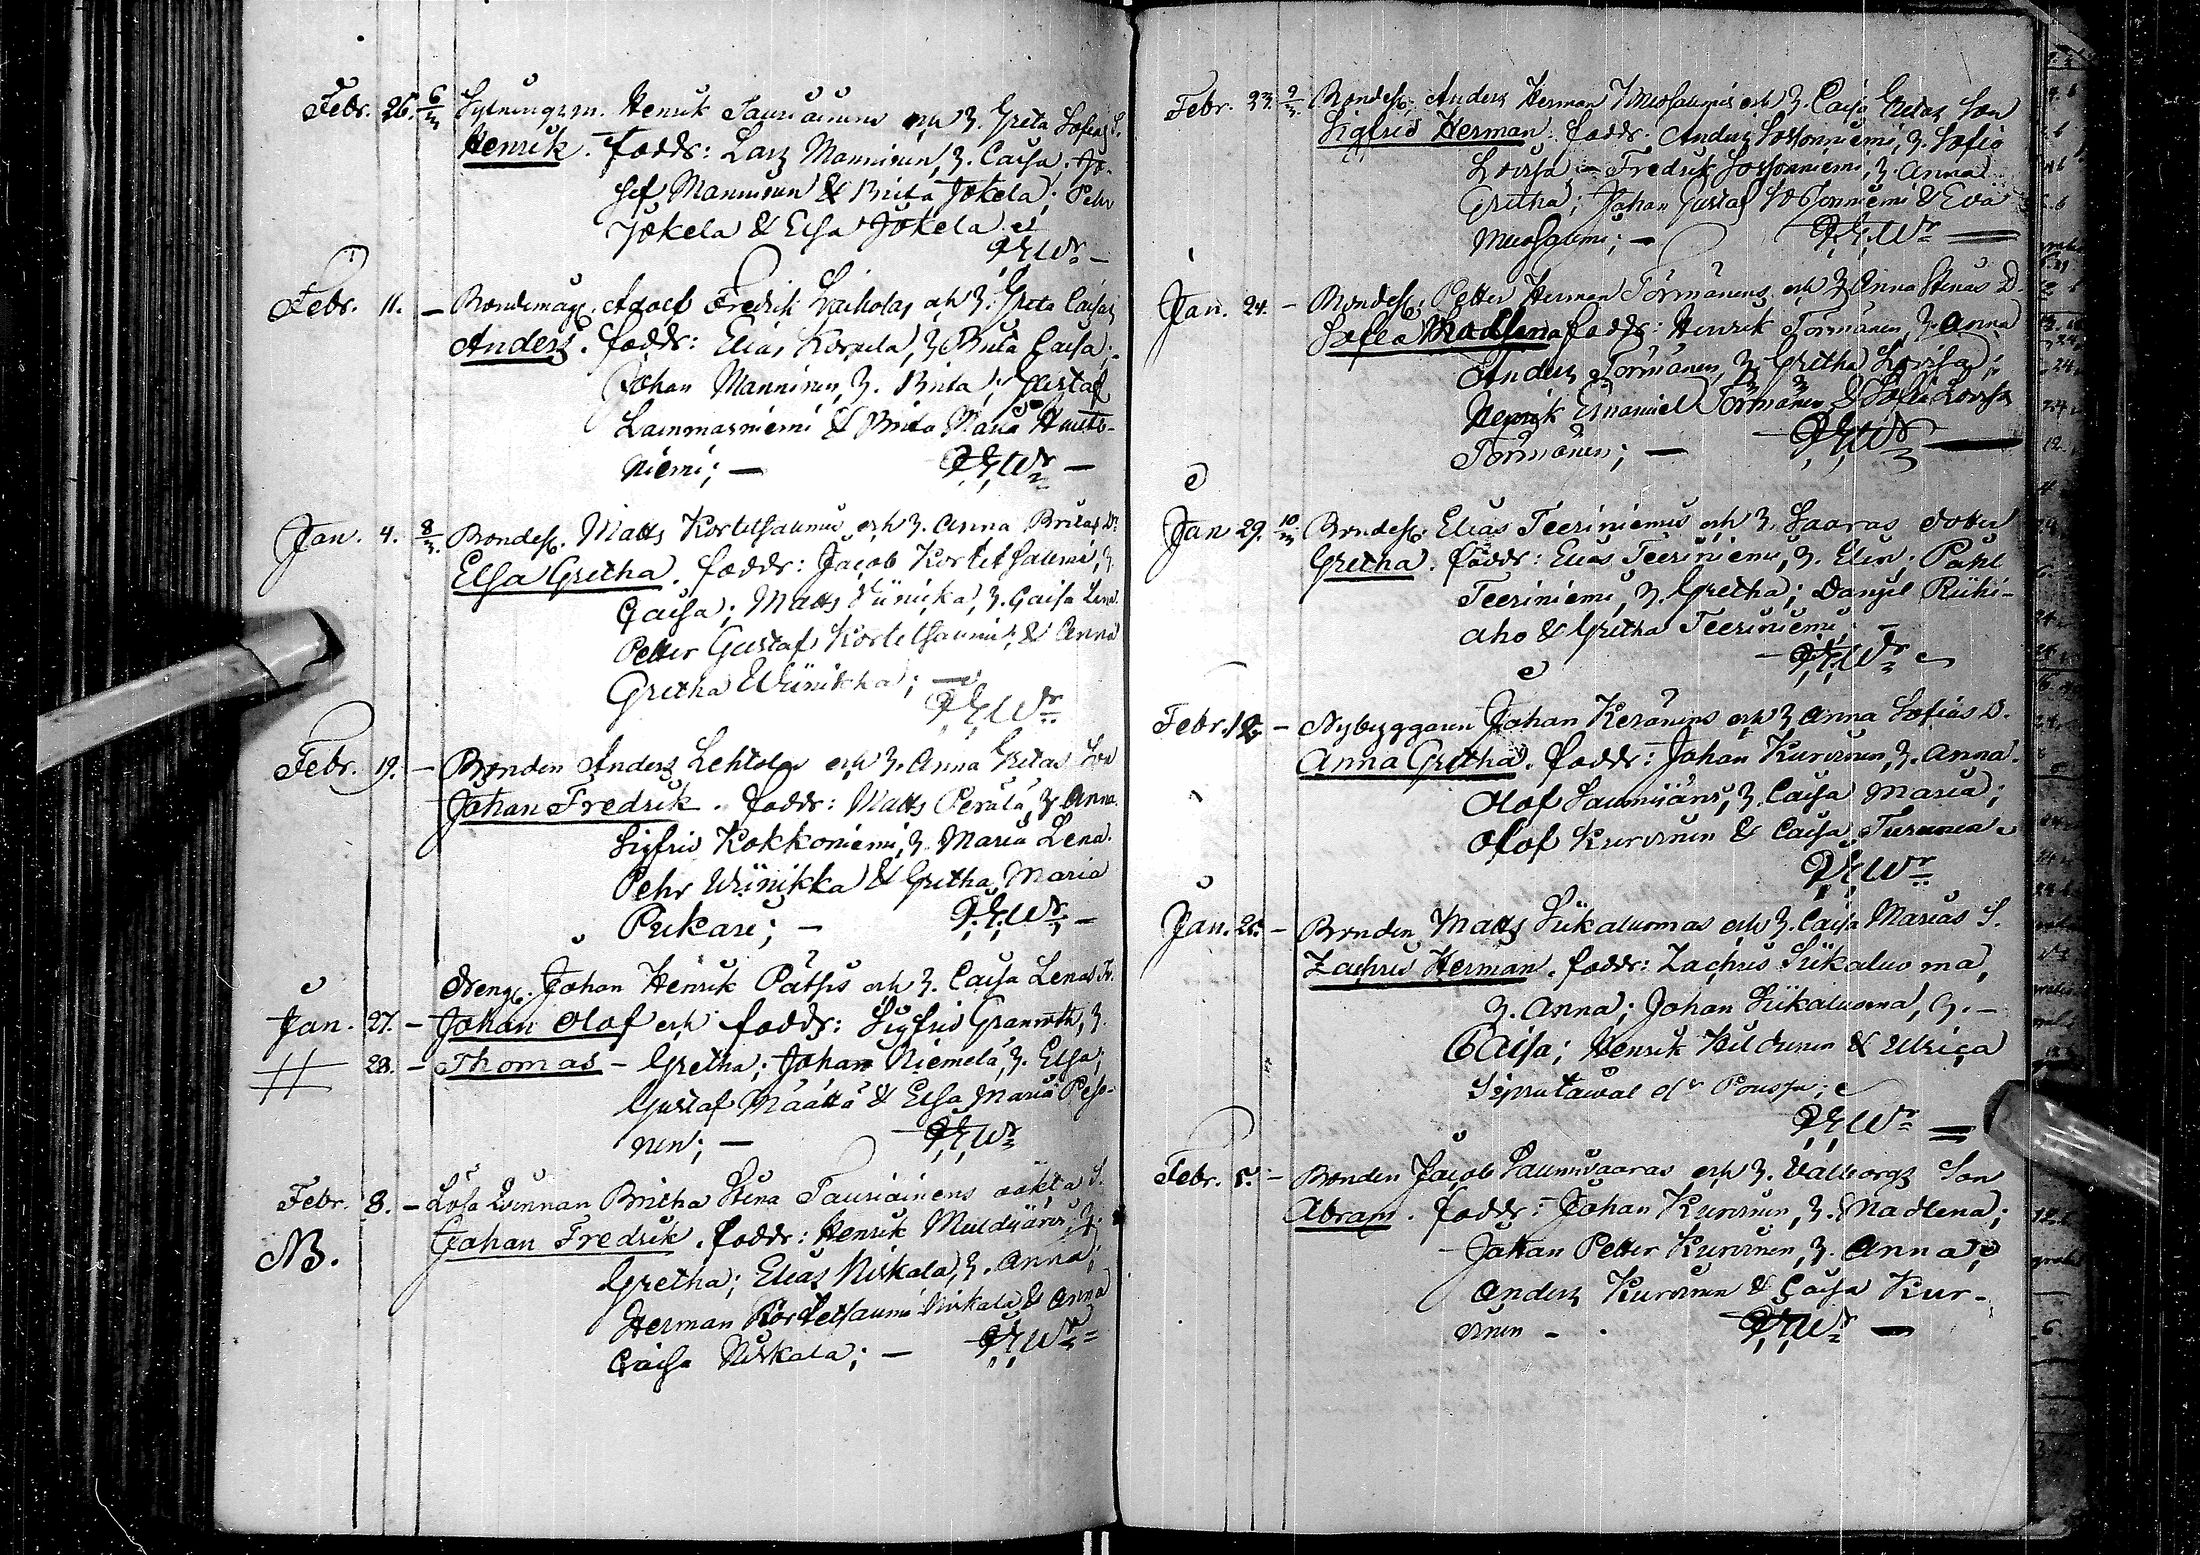 Febr. 26. 6/3 Sytningsm. Henrik Tauriainens och H. Greta Sofias S.
Henrik. faddr: Lars Manninen, H. Caisa. Jo-
sef Manninen & Brita Jokela; Pehr
Jokela & Elsa Jokela
Febr. 11. - Bondemåg. Adolf Fredrik Laiholas och H. Greta Caisas
Anders. faddr: Elias Korpela, H. Brita Caisa;
Johan Manninen, H. Brita; Gustaf
Lammasniemi & Brita Maria Hauto-
niemi; -
Jan. 4. 8/3. Bondes. Matts Kortetsaumis och H. Anna Britas D.
Elsa Gretha. faddr: Jacob Kortetsaumi, H.
Caisa; Matts Wiinika, H. Caisa Lena.
Petter Gustaf Kortetsaumi, & Anna
Gretha Wiinikka; -
Febr. 19. - Bonden Anders Lehtolas och H. Anna Gretas Son
Johan Fredrik. faddr: Matts Perälä, H. Anna.
Sigfrid Kokkoniemi, H. Maria Lena.
Pehr Wiinikka & Gretha Maria
Pukari; -
Drengs. Johan Henrik Pätsis och H. Caisa Lenas
Jan. 27. - Johan Olof och faddr: Sigfrid Granroth, H.
28. - Thomas - Gretha; Johan Niemelä, H. Elsa;
Gustaf Määttä & Elsa Maria Peso-
nen; -
Febr. 8. - Lösa Qvinnan Britha Stina Tauriainens oäkta S.
NB. Johan Fredrik. faddr: Henrik Mustajärvi, H.
Gretha; Elias Niskala, H. Anna;
Herman Kortetsaumi Niskala & Anna
Caisa Niskala; -
Febr. 23. 9/3 Bondes. Anders Herman Muosalmis och H. Caisa Gretas Son
Sigfrid Herman. faddr: Anders , H. Sofia
Lovisa - Fredrik , H. Anna
Gretha; Johan Gustaf & Eva
Muosalmi; -
Jan. 24. - Bondes. Petter Herman Törmänens och H. Anna Stinas D.
Sofia Madlena faddr: Henrik Törmänen, H. Anna
Anders Törmänen, H. Gretha Lovisa;
Henrik Emanuel Törmänen & Sofia Lovisa
Törmänen; -
Jan 29. 10/3 Bondes. Elias Teeriniemis och H. Saaras dotter
Gretha. faddr: Elias Teeriniemi, H. Elin. Påhl
Teeriniemi, H. Gretha; Daniel Riihi-
aho & Gretha Teeriniemi -
Febr. 12. - Nybyggaren Johan Keränens och H. Anna Sofias D.
Anna Gretha. faddr: Johan Kurvinen, H. Anna.
Olof Saunijärvi, H. Caisa Maria;
Olof Kurvinen & Caisa Turunen
Jan. 25. - Bonden Matts Siikaluomas och H. Caisa Marias S.
Zachris Herman. faddr: Zachris Siikaluoma,
H. Anna; Johan Siikaluoma, H. -
Caisa; Henrik Hildunen & Ulrica
Febr. 5. - Bonden Jacob Saunivaaras och H. Valborgs Son
Abram. faddr: Johan Kurvinen, H. Madlena;
Johan Petter Kurvinen, H. Anna;
Anders Kurvinen & Caisa Kur-
vinen -